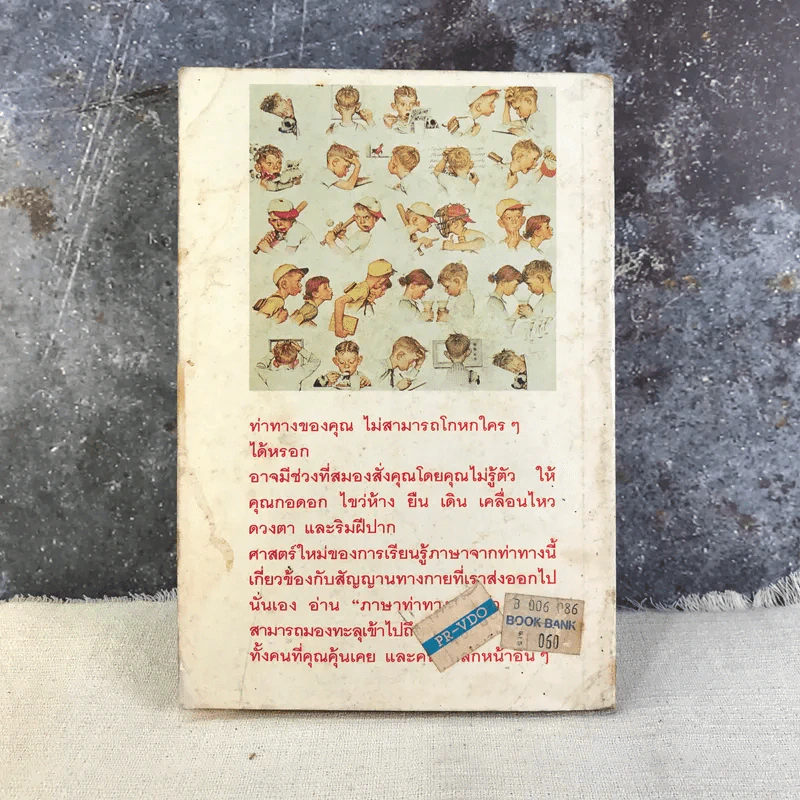 ท่าทางของคุณ ไม่สามารถโกหกใคร ๆ
ได้หรอก
อาจมีช่วงที่สมองสั่งคุณโดยคุณไม่รู้ตัว ให้
คุณกอดอก ไขว่ห้าง ยืน เดิน เคลื่อนไหว
ดวงตา และริมฝีปาก
ศาสตร์ใหม่ของการเรียนรู้ภาษาจากท่าทางนี้
เกี่ยวข้องกับสัญญานทางกายที่เราส่งออกไป
นั่นเอง อ่าน “ภาษาท่าทาง
สามารถมองทะลุเข้าไปถึง
ทั้งคนที่คุณคุ้นเคย และ
PR-VDO
B 006 086
BOOK BANK
060